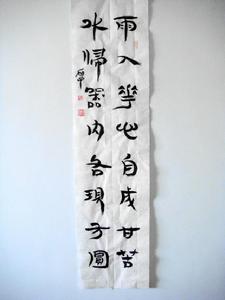 雨入花心自成甘苦
水歸器內各現方圓